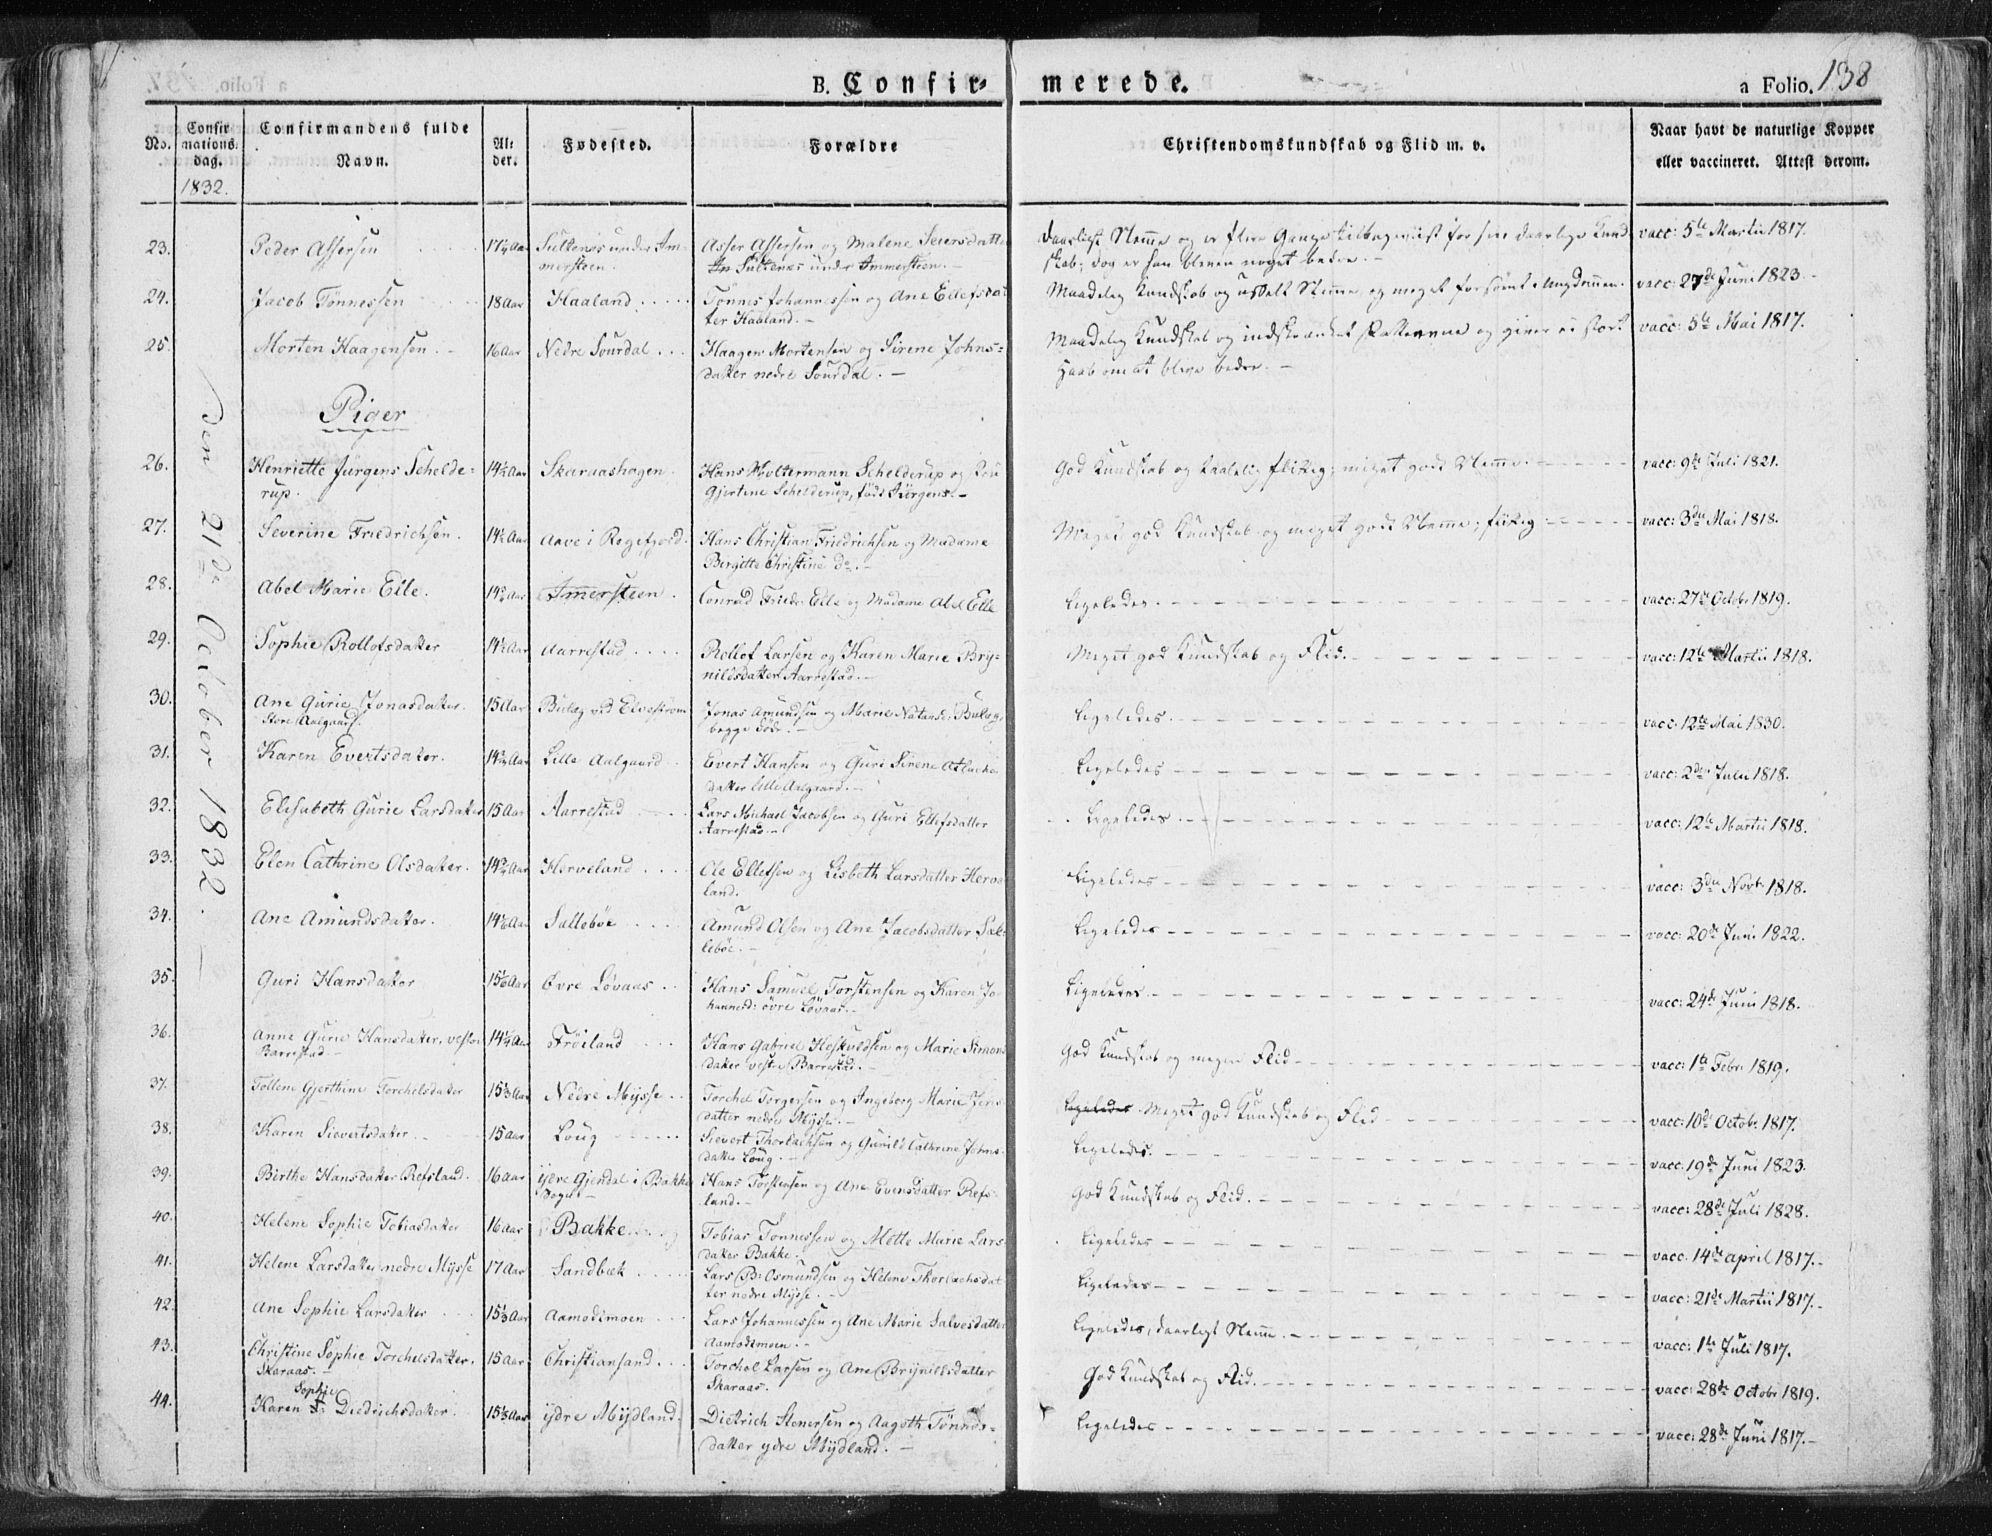 B. Confir-
merede.
a Folio. 138
No.
Confir
mations-
dag.
Confirmandens fulde
Navn.
Al-
der.
Fødested.
Forældre
Christendomskundskab og Flid m. v.
Naar havt de naturlige Kopper
eller vaccineret. Attest derom.
1832.
den 21de October 1832.
23. Peder Assersen 17¼ Aar Sultenes under Im- Asser Assersen og Malene Seiersdatter vacc: 5te Martii 1817.
mersteen. Sultenes under Immersteen. skab; dog er han bleven noget bedre.
24. Jacob Tönnessen 18 Aar Haaland Tönnes Johannessen og Ane Ellefsdat Maadelig Kundskab og vacc: 27de Juni 1823
ter Haaland.
25. Morten Haagensen 16 Aar Nedre Sourdal Haagen Mortensen og Sirene Johns= Maadelig Kundskab og indskrænket Fatteevne og giver ei stort vacc: 5te Mai 1817.
datter nedre Sourdal. Haab om at blive bedre.
Piger
26. Henriette Jürgens Schelde= 14½ Aar Skaraashagen. Hans Woltermann Schelderup og Fru God Kundskab og taalelig flittig; meget godt Nemme. vacc: 9de Juli 1821.
rup. Gjertine Schelderup, född Jürgens.
27. Severine Friedrichsen. 14½ Aar Aave i Regefjord. Hans Christian Friedrichsen og Madame Meget god Kundskab og meget godt Nemme; flittig vacc: 3die Mai 1818.
Birgitte Christine do.
28. Abel Marie Elle. Immersteen. Conrad Friedr. Elle og Madame Abel Elle Ligeledes. vacc: 27de Octobr 1819.
29. Sophie Rollofsdatter 14½ Aar Aarrestad Rollof Larsen og Karen Marie Bry= Meget god Kundskab og Flid. vacc: 12te Martii 1818.
nildsdatter Aarrestad.
30. Ane Gurie Jonasdatter. 15 Aar Bulæg ved Elvestrøm Jonas Amundsen og Marie Natansd: Bulæg Ligeledes. vacc: 12te Mai 1830.
store Aalgaard. begge døde.
31. Karen Evertsdatter. 14¾ Aar Lille Aalgaard. Evert Hansen og Guri Sirene Atlacks Ligeledes vacc: 2den Julii 1818.
datter Lille Aalgaard.
32. Elisabeth Gurie Larsdatter 15 Aar Aarrestad Lars Michael Jacobsen og Guri Ellefsdatter Ligeledes. vacc: 12te Martii 1818.
Aarrestad.
33. Elen Cathrine Olsdatter. 14¾ Aar Herveland Ole Ellefsen og Lisbeth Larsdatter Herve Ligeledes vacc: 3die Novbr 1818.
land.
34. Ane Amundsdatter. Sallebøe Amund Olsen og Ane Jacobsdatter Sal= Ligeledes vacc: 20de Juni 1822.
lebøe.
35. Guri Hansdatter Øvre Løvaas Hans Samuel Torstensen og Karen Jo Ligeledes vacc: 24de Juni 1818.
hannesd: øvre Løvaas.
36. Anne Gurie Hansdatter, vestre 14¼ Aar Frøiland Hans Gabriel Hoskuldsen og Marie Simons God Kundskab og megen Flid vacc: 1te Febr. 1819.
Barrestad datter vestre Barrestad.
37. Tollene Gjerthine Torchelsdatter 15⅓ Aar Nedre Mysse Torchel Torgersen og Ingeborg Marie Jens Ligeledes Meget god Kundskab og Flid vacc: 10de Octobr. 1817.
datter nedre Mysse.
38. Karen Sievertsdatter 15 Aar Loug Sievert Thorlachsen og Gunild Cathrine Johns Ligeledes. vacc. 19de Juni 1823.
datter Loug.
39. Birthe Hansdatter Refsland. 16 Aar ydre Gjendal i Bakke Hans Torstensen og Ane Evensdatter Refs= God Kundskab og Flid. vacc: 28de Juli 1828.
Sogn land.
40. Helene Sophie Tobiasdatter 16 Aar Bakke Tobias Tönnessen og Mette Marie Lars Ligeledes vacc. 14de April 1817.
datter Bakke.
41. Helene Larsdatter nedre Mysse 17 Aar Sandbæk Lars B: Osmundsen og Helene Thorlachsdat Ligeledes vacc: 21de Martii 1817.
ter nedre Mysse.
42. Ane Sophie Larsdatter 15⅓ Aar Aamodtmoen Lars Johannessen og Ane Marie Salvesdatter Ligeledes, daarligt Nemme. vacc: 1te Juli 1817.
Aamodtmoen.
43. Christine Sophie Torchelsdatter. 15 Aar Christiansand. Torchel Larsen og Ane Brynildsdatter God Kundskab og Flid. vacc: 28de Octobr 1819.
Skaraas. Skaraas.
Sophie
44. Karen Diedrichsdatter. ydre Mydland. Dietrich Stenersen og Aagoth Tönnes= Ligeledes vacc: 28de Juni 1817.
datter ydre Mydland.